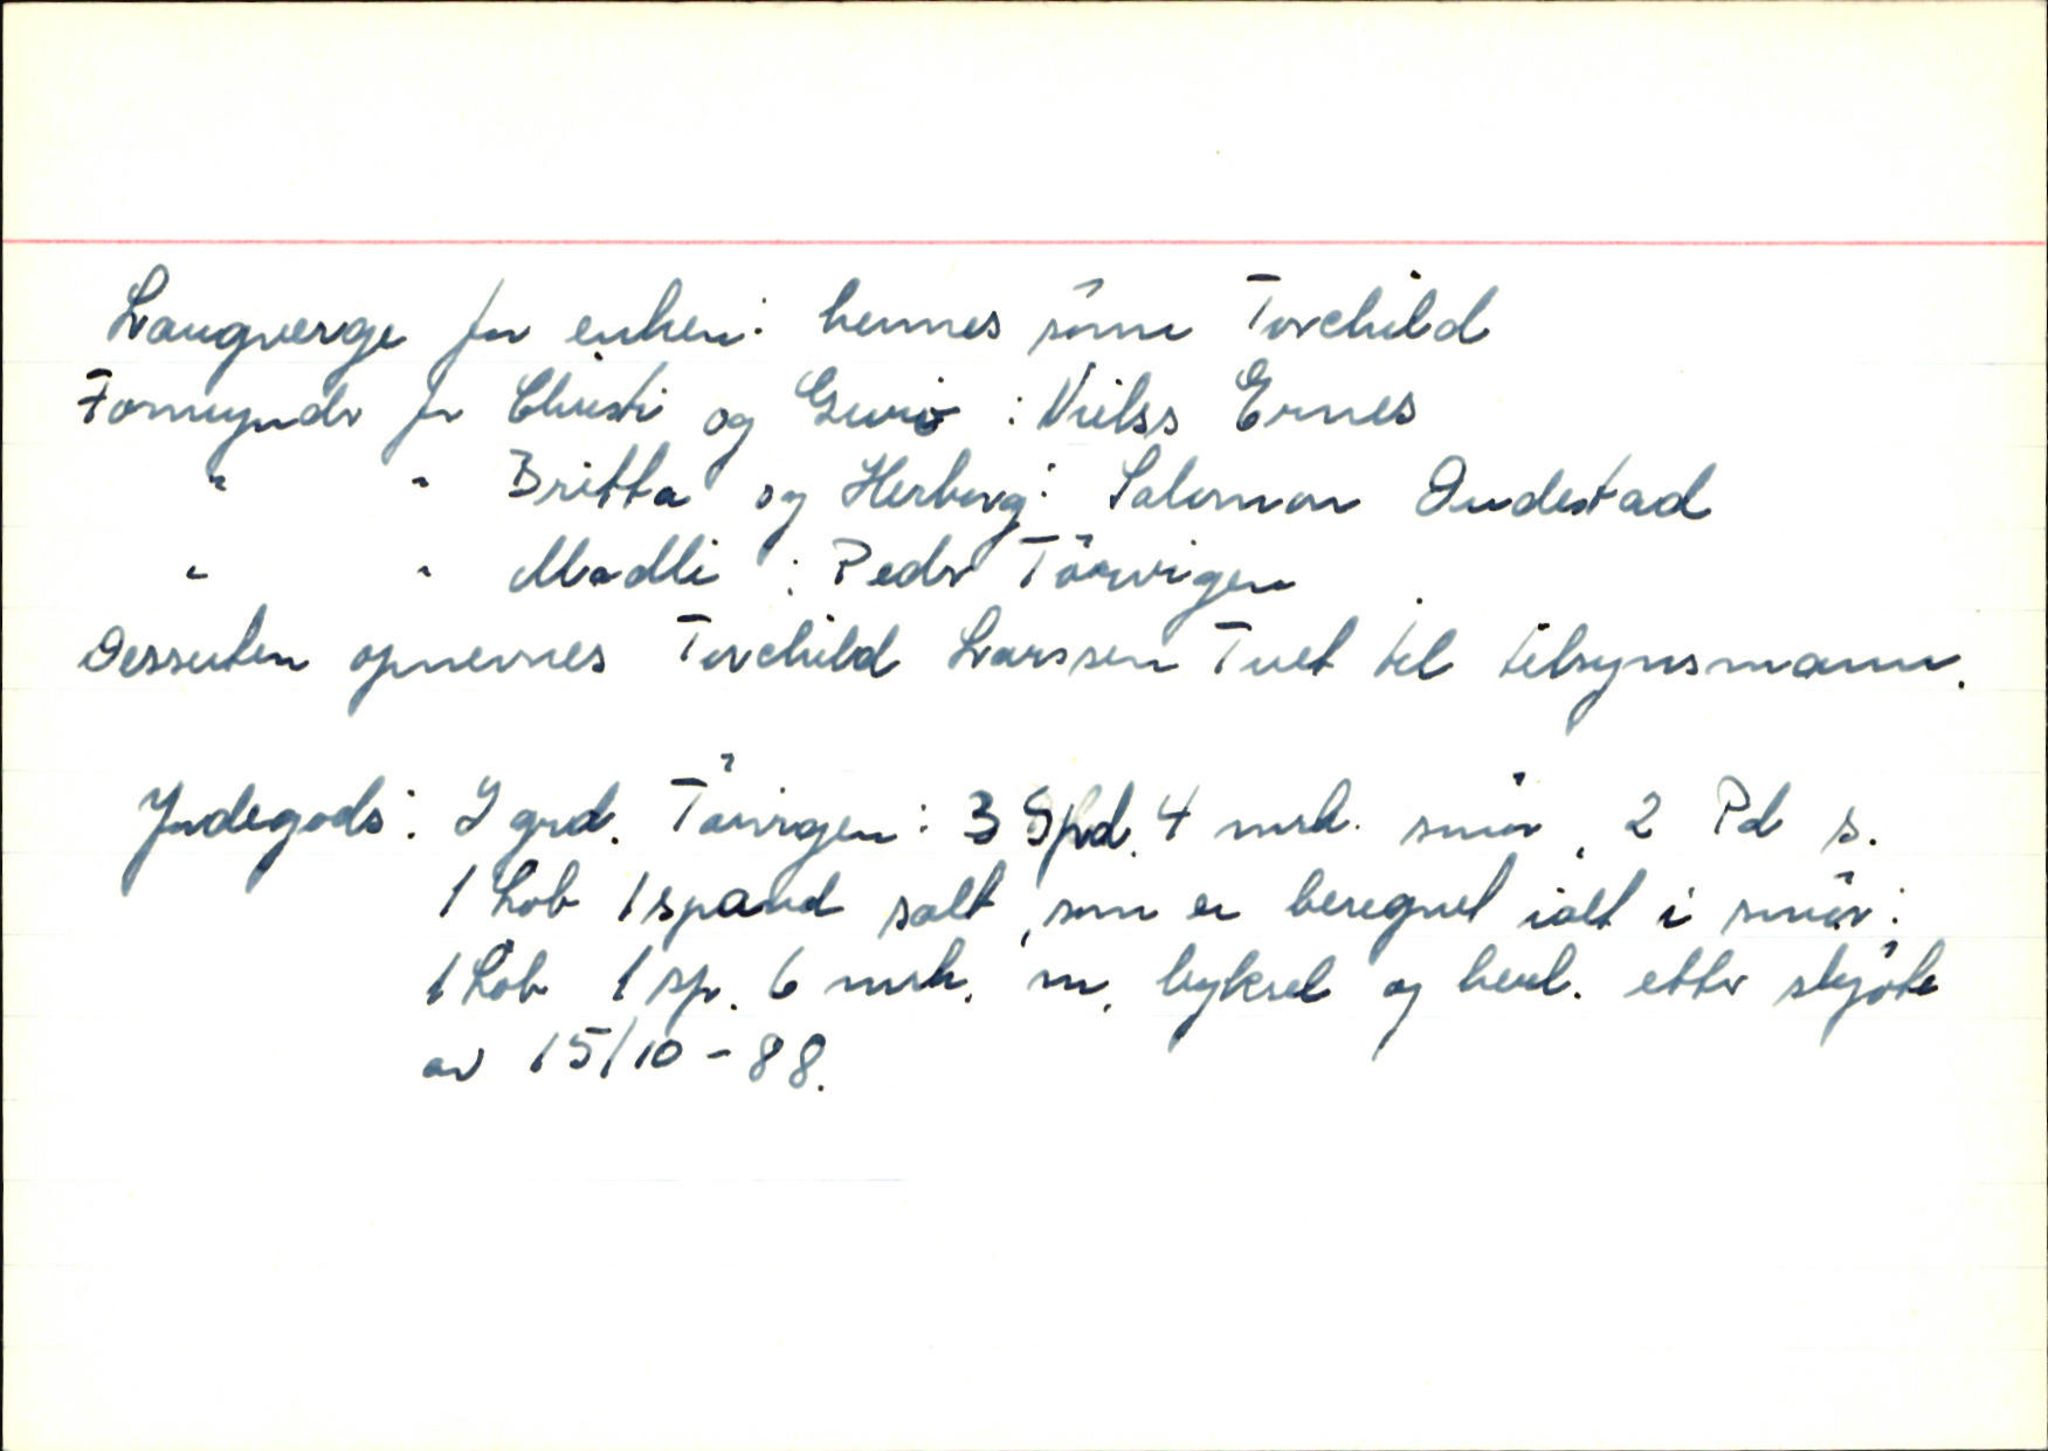 Laugverge for enken: hennes sönn Torchild
Formynder for Christi og Guro : Nielss Ernes
" " Britta og Herborg: Salomon Dudestad
" " Madli : Peder Törvigen
Dessuten opnevnes Torchild Larssen Tvet til tilsynsmann.
Jndegods: I grd. Törvigen: 3 Spd. 4 mrk. smör, 2 Pd s.
1 Löb 1 spand salt, som er beregnet ialt i smör:
1 Löb 1 sp. 6 mrk. m. byksel og herl. etter skjöte
av 15/10 - 88.